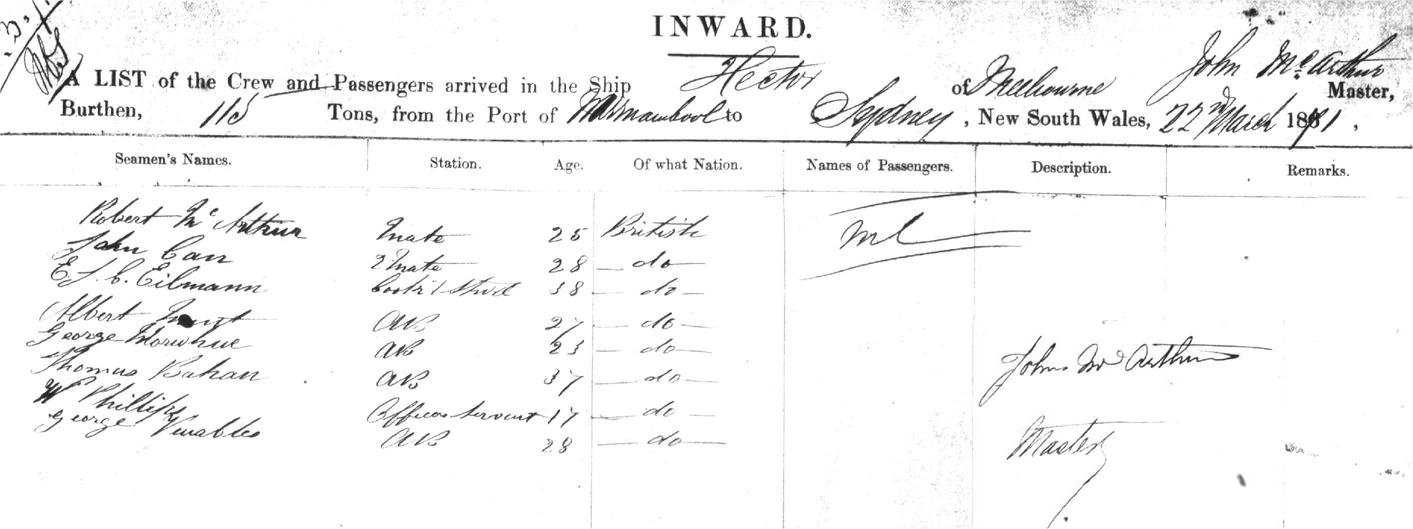 INWARD.
A LIST of the Crew and Passengers arrived in the Ship Hector of Melbourne John McArthur Master,
Burthen, 115 Tons, from the Port of Warrnambool to Sydney, New South Wales, 22nd March 1871,
Seamen's Names. Station. Age. Of what Nation. Names of Passengers. Description. Remarks.
Robert McArthur Mate 25 British Nil
John Carr 2 Mate 28 — do —
E L C Eilmann Cook & Stwd 38 — do —
Albert 27 — do —
George AB 23 — do —
Thomas Bahan AB 37 — do —
John McArthur
W Phillips Officers Servant 17 — do —
George Venables AB 28 — do —
Master